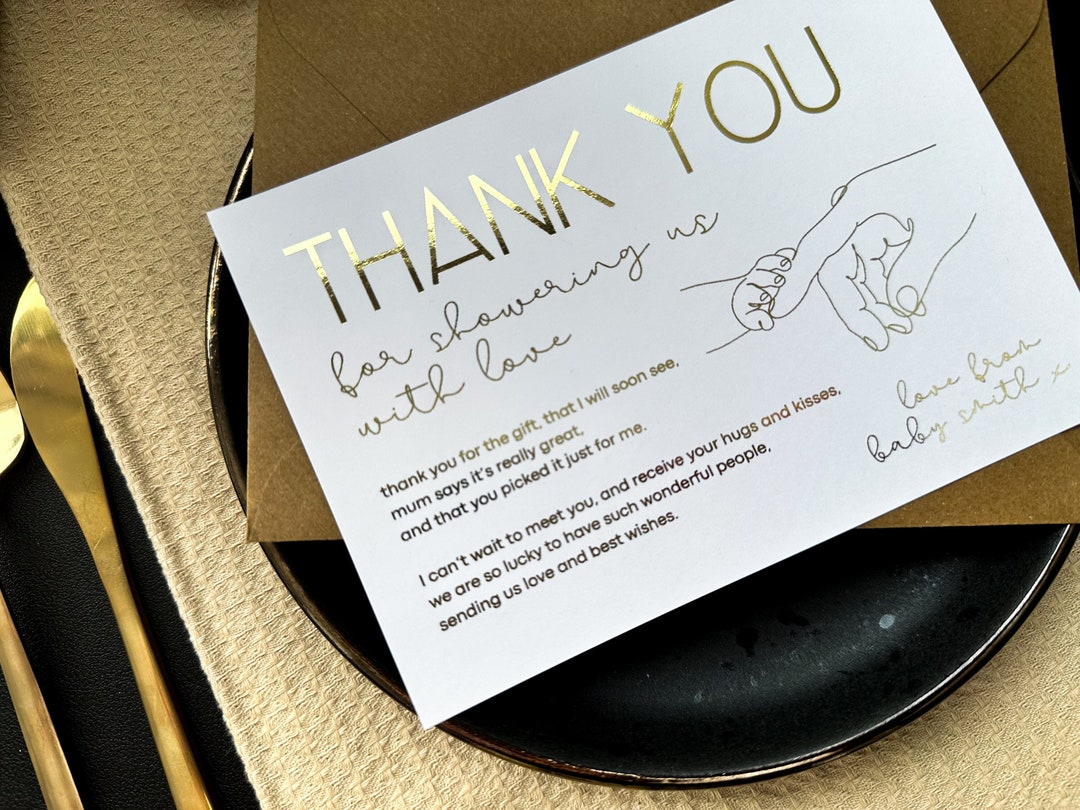 THANK YOU
for showering us
with love
thank you for the gift, that I will soon see,
mum says it's really great,
and that you picked it just for me.
I can't wait to meet you, and receive your hugs and kisses,
we are so lucky to have such wonderful people,
sending us love and best wishes.
love from
baby smith x